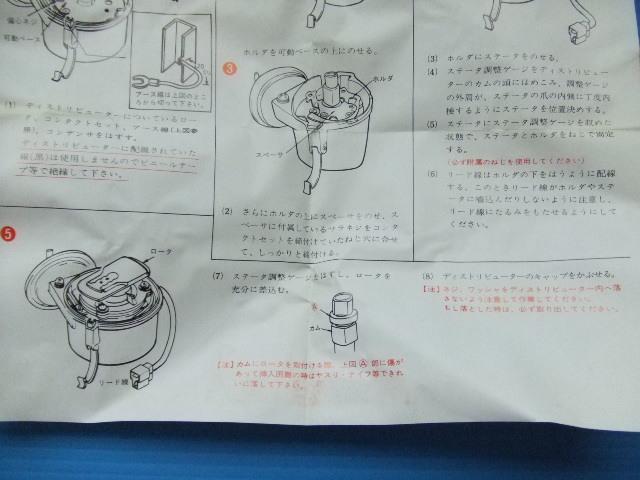 偏心ネジ
可動ベース
アース線は上図のとこ
ろから切って下さい。
(1) ディストリビューターについているロー
タ、コンタクトセット、アース線(上図参
照)、コンデンサをはずす。
ディストリビューターに配線されていた
線(黒)は使用しませんのでビニールテー
プ等で絶縁して下さい。
ホルダを可動ベースの上にのせる。
3
ホルダ
スペーサ
(2) さらにホルダの上にスペーサをのせ、ス
ペーサに付属しているサラネジをコン
タクトセットを締付けていたねじ穴に合せ
て、しっかりと締付ける。
(3) ホルダにステータをのせる。
(4) ステータ調整ゲージをディストリビュー
ターのカムの頭にはめこみ、調整ゲージ
の外周が、ステータの爪の内側に丁度内
接するようにステータを位置決めする。
(5) ステータにステータ調整ゲージを収めた
状態で、ステータとホルダをねじで固定
する。
(必ず附属のねじを使用してください)
(6) リード線はホルダの下をはうように配線
する。このときリード線がホルダやステ
ータに噛込んだりしないように注意し、
リード線にたるみをもたせるようにして
ください。
5
ロータ
リード線
(7) ステータ調整ゲージをはずし、ロータを
充分に差込む。
A
カム
【注】カムにロータを取付ける際、上図Ⓐ部に傷が
あって挿入困難の時はヤスリ・ナイフ等できれ
いに落して下さい。
(8) ディストリビューターのキャップをかぶせる。
【注】ネジ、ワッシャをディストリビューター内へ落
さないよう注意して作業してください。
もし落とした時は、必ず取り出してください。